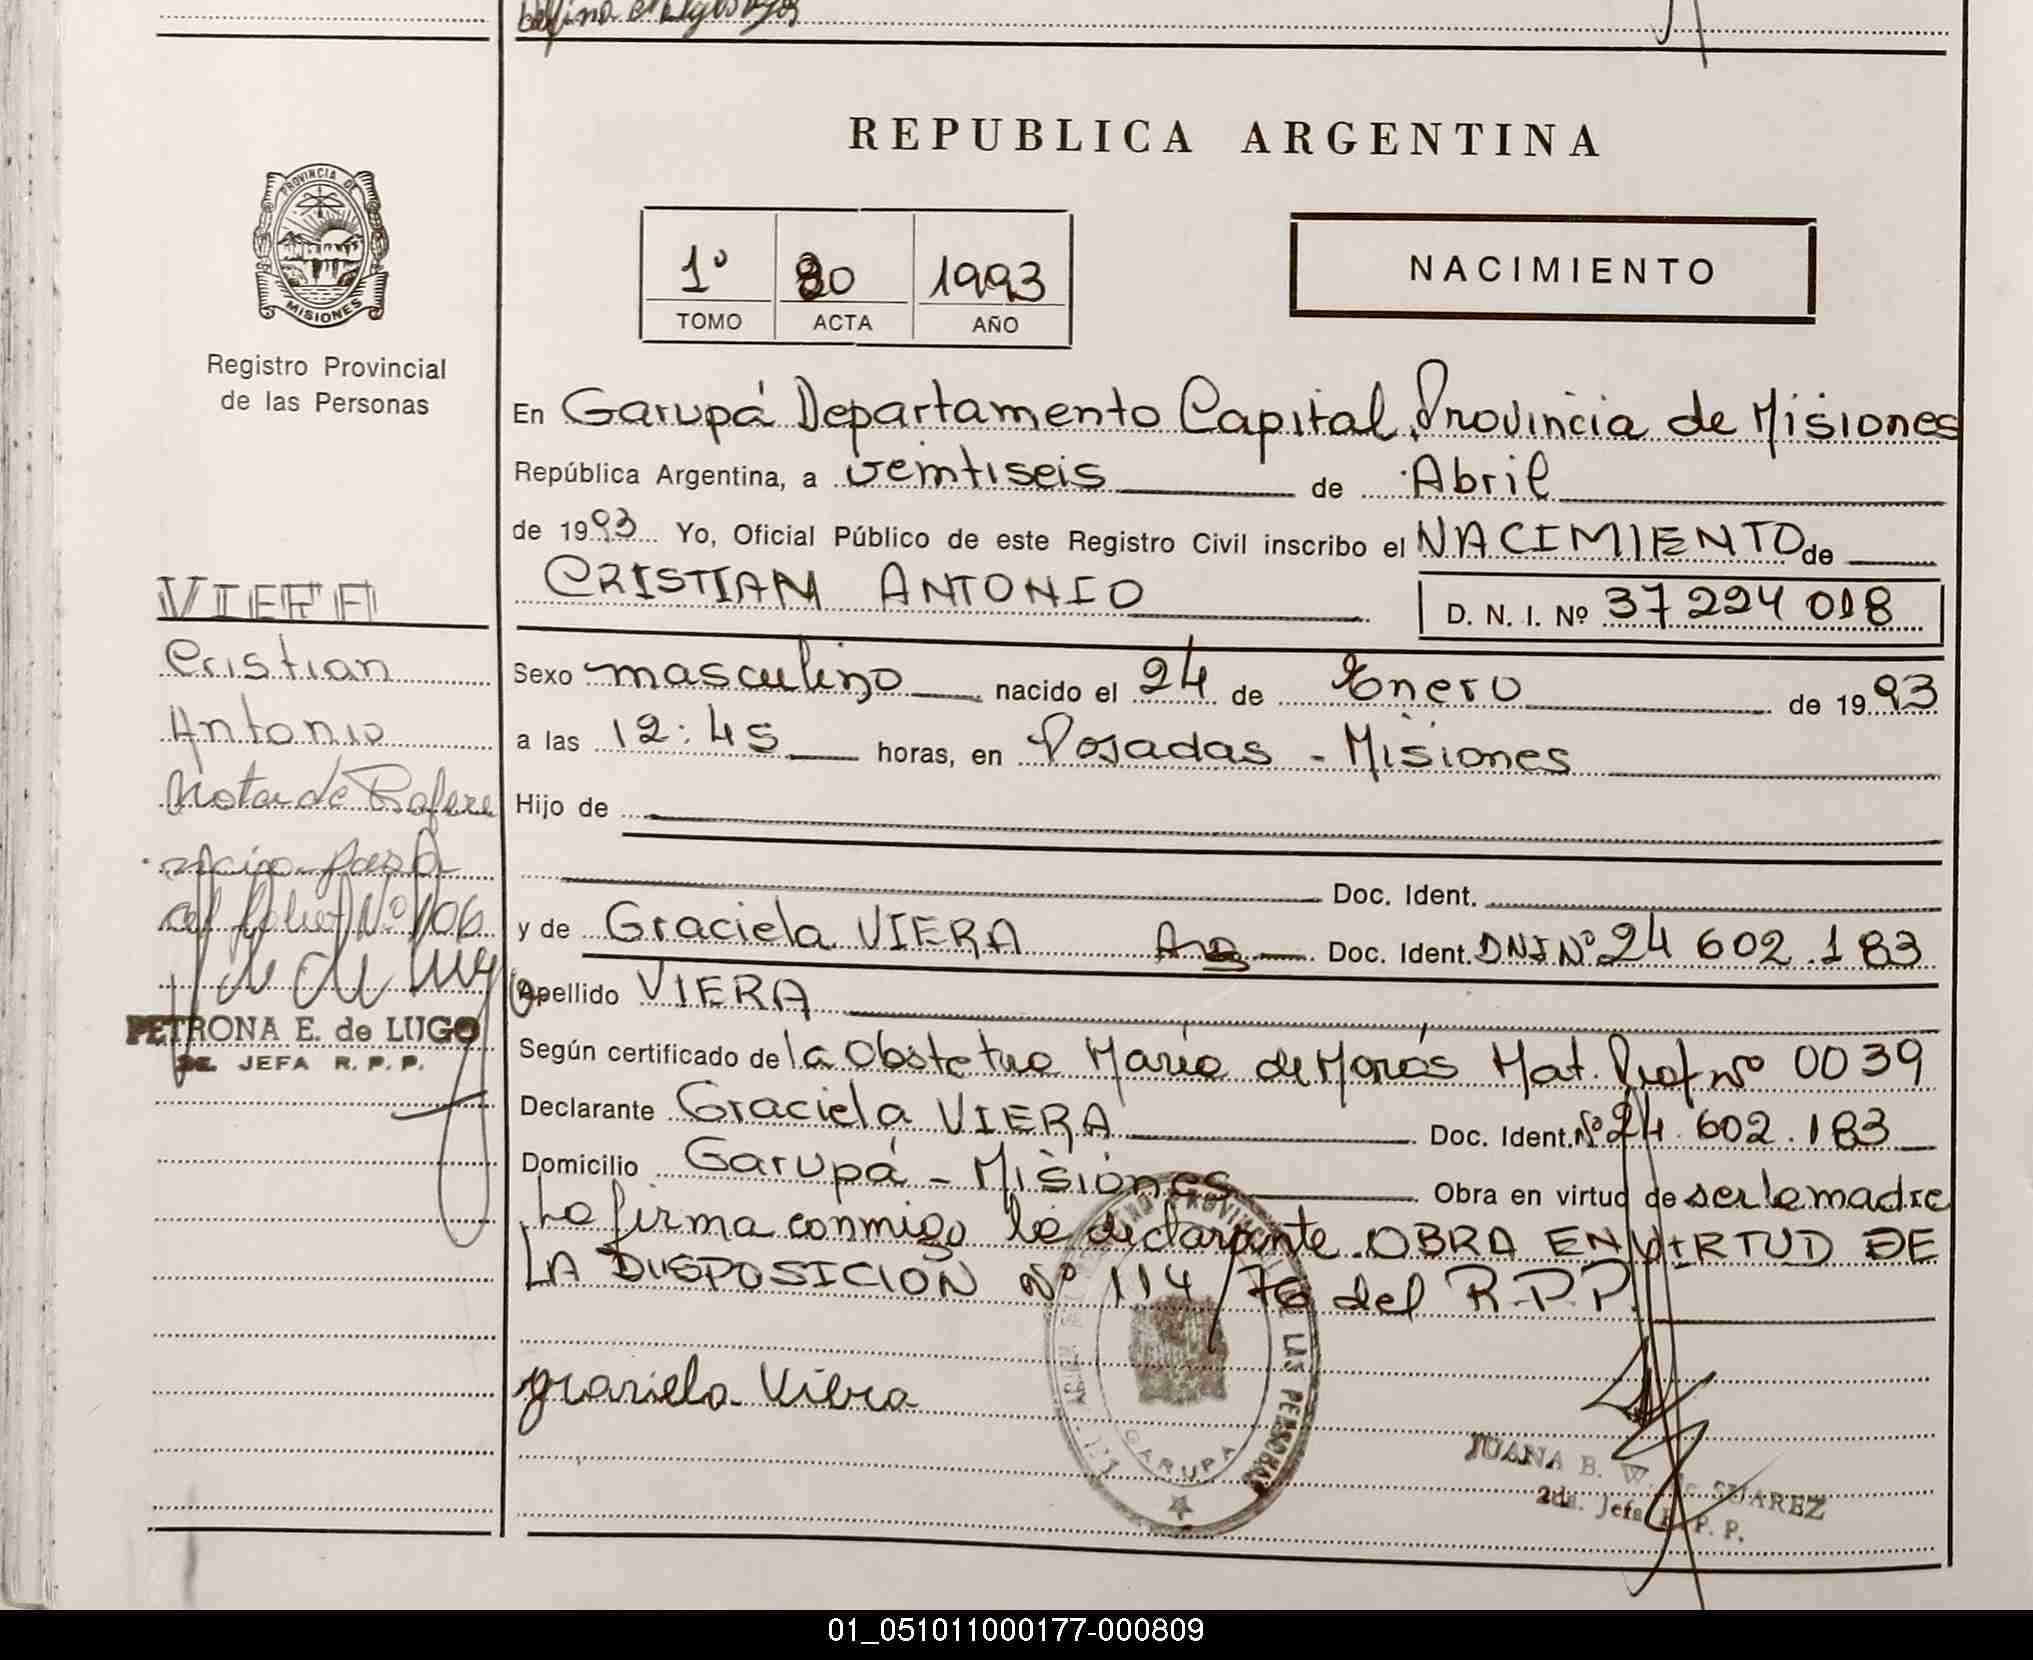 REPUBLICA ARGENTINA
PROVINCIA DE
MISIONES
Registro Provincial
de las Personas
1º 80 1993
TOMO ACTA AÑO
NACIMIENTO
En Garupá Departamento Capital, Provincia de Misiones
República Argentina, a veintiseis de Abril
de 1993 Yo, Oficial Público de este Registro Civil inscribo el NACIMIENTO de
CRISTIAN ANTONIO D. N. I. Nº 37 224 018
VIERA
Cristian
Antonio
Nota de Refere
ncia pasa
al folio Nº 106
PETRONA E. de LUGO
JEFA R. P. P.
Sexo masculino nacido el 24 de Enero de 1993
a las 12:45 horas, en Posadas - Misiones
Hijo de
Doc. Ident.
y de Graciela VIERA Doc. Ident. DNI Nº 24 602.183
Apellido VIERA
Según certificado de la Obstetra María de Morás Mat. Prof Nº 0039
Declarante Graciela VIERA Doc. Ident. Nº 24.602.183
Domicilio Garupá - Misiones Obra en virtud de ser la madre
La firma conmigo la declarante. OBRA EN VIRTUD DE
LA DISPOSICION Nº 114/76 del R.P.P.
Graciela Viera
LAS PERSONAS
GARUPA
JUANA B. W. de SUAREZ
2da. Jefa R. P. P.
01_051011000177-000809